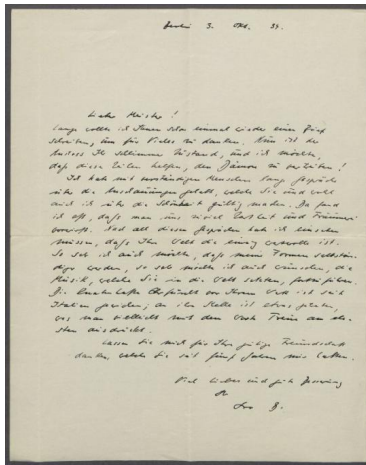 Berlin 3. Okt. 34.
Lieber Meister!
Lange wollte ich Ihnen schon einmal wieder einen Brief
schreiben, um für Vieles zu danken. Nun ist der
Anlass Ihr schlimmer Zustand, und ich möchte,
daß diese Zeilen helfen, den Dämon zu vertreiben!
Ich habe mit verständigen Menschen lange Gespräche
über die Anschauungen gehabt, welche Sie und wohl
auch ich über die Schönheit gültig machen. Da fand
ich oft, daß man uns zuviel Zartheit und Träumerei
vorwarf. Nach all diesen Gesprächen habe ich einsehen
müssen, daß Ihre Welt die einzig wertvolle ist.
So sehr ich auch möchte, daß meine Formen selbstän-
diger werden, so sehr möchte ich auch wünschen, die
Musik, welche Sie in die Welt setzten, fortzuführen.
Die Ehrfurcht vor Ihrem Werk ist seit
Italien geworden; an ihre Stelle ist etwas getreten,
was man vielleicht mit dem Wort Treue am ehe-
sten ausdrückt.
Lassen Sie mich für Ihre gütige Freundschaft
danken, welche Sie seit fünf Jahren mir halten.
Viel Liebes und gute Besserung
Ihr